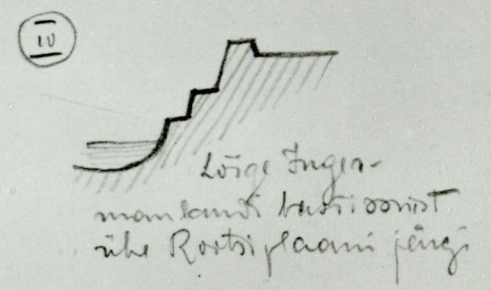 IV
Lõige Inger-
manlandi bastionist
ühe Rootsi plaani järgi